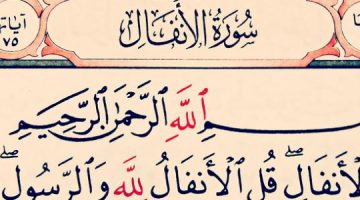 سُورَةُ الأَنفَالِ
آيَاتُهَا
٧٥
ٱللَّهِ ٱلرَّحْمَٰنِ ٱلرَّحِيمِ
قُلِ ٱلْأَنفَالُ لِلَّهِ وَٱلرَّسُولِ ۖ